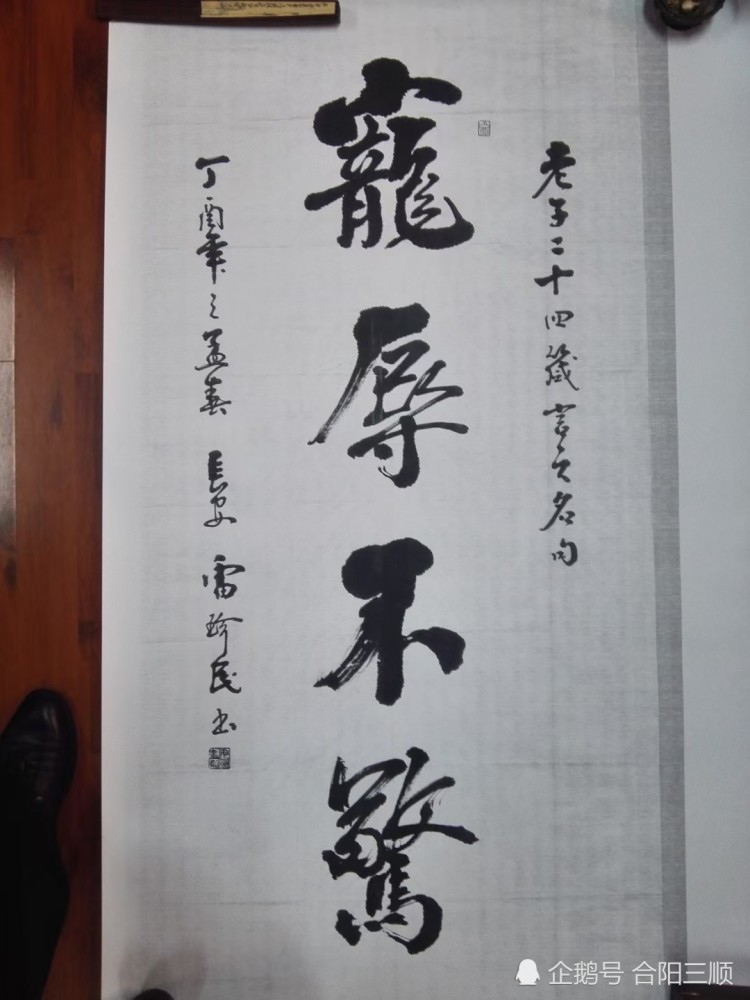 老子二十四箴言之名句
寵辱不驚
丁酉年之孟春 長安 雷珍民书
企鹅号 合阳三顺